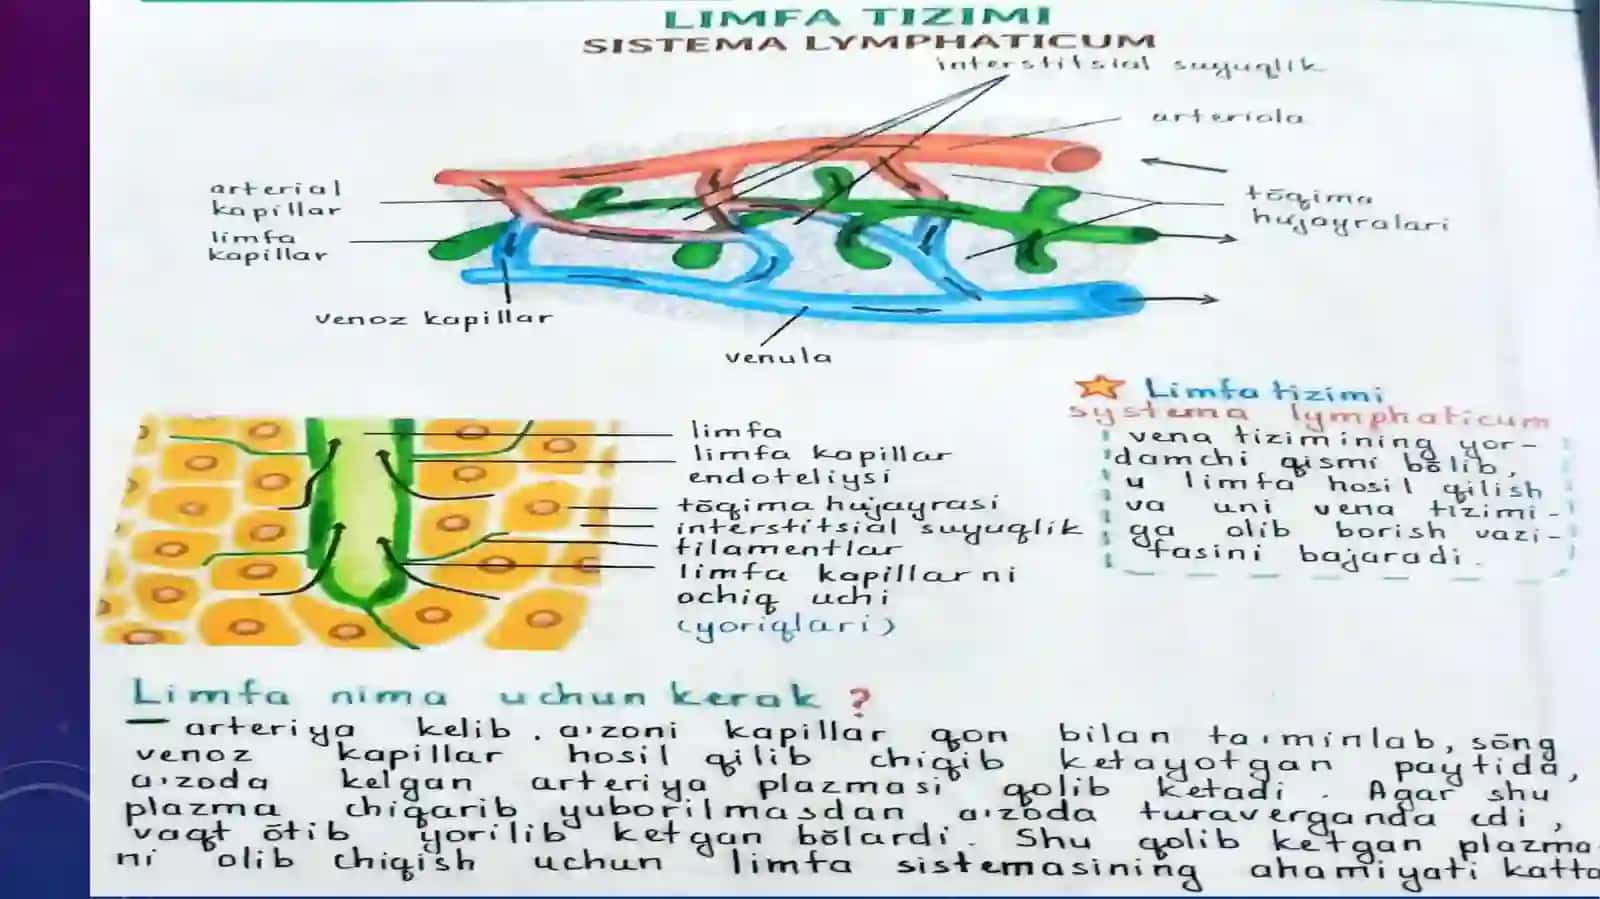 LIMFA TIZIMI
SISTEMA LYMPHATICUM
interstitsial suyuqlik
arteriola
arterial
kapillar
limfa
kapillar
tōqima
hujayralari
venoz kapillar
venula
limfa
limfa kapillar
endoteliysi
tōqima hujayrasi
interstitsial suyuqlik
filamentlar
limfa kapillarni
ochiq uchi
(yoriqlari)
Limfa tizimi
systema lymphaticum
vena tizimining yor-
damchi qismi bōlib,
u limfa hosil qilish
va uni vena tizimi-
ga olib borish vazi-
fasini bajaradi.
Limfa nima uchun kerak ?
— arteriya kelib. a'zoni kapillar qon bilan ta'minlab, sōng
venoz kapillar hosil qilib chiqib ketayotgan paytida,
a'zoda kelgan arteriya plazmasi qolib ketadi. Agar shu
plazma chiqarib yuborilmasdan a'zoda turaverganda edi,
vaqt ōtib yorilib ketgan bōlardi. Shu qolib ketgan plazma-
ni olib chiqish uchun limfa sistemasining ahamiyati katta